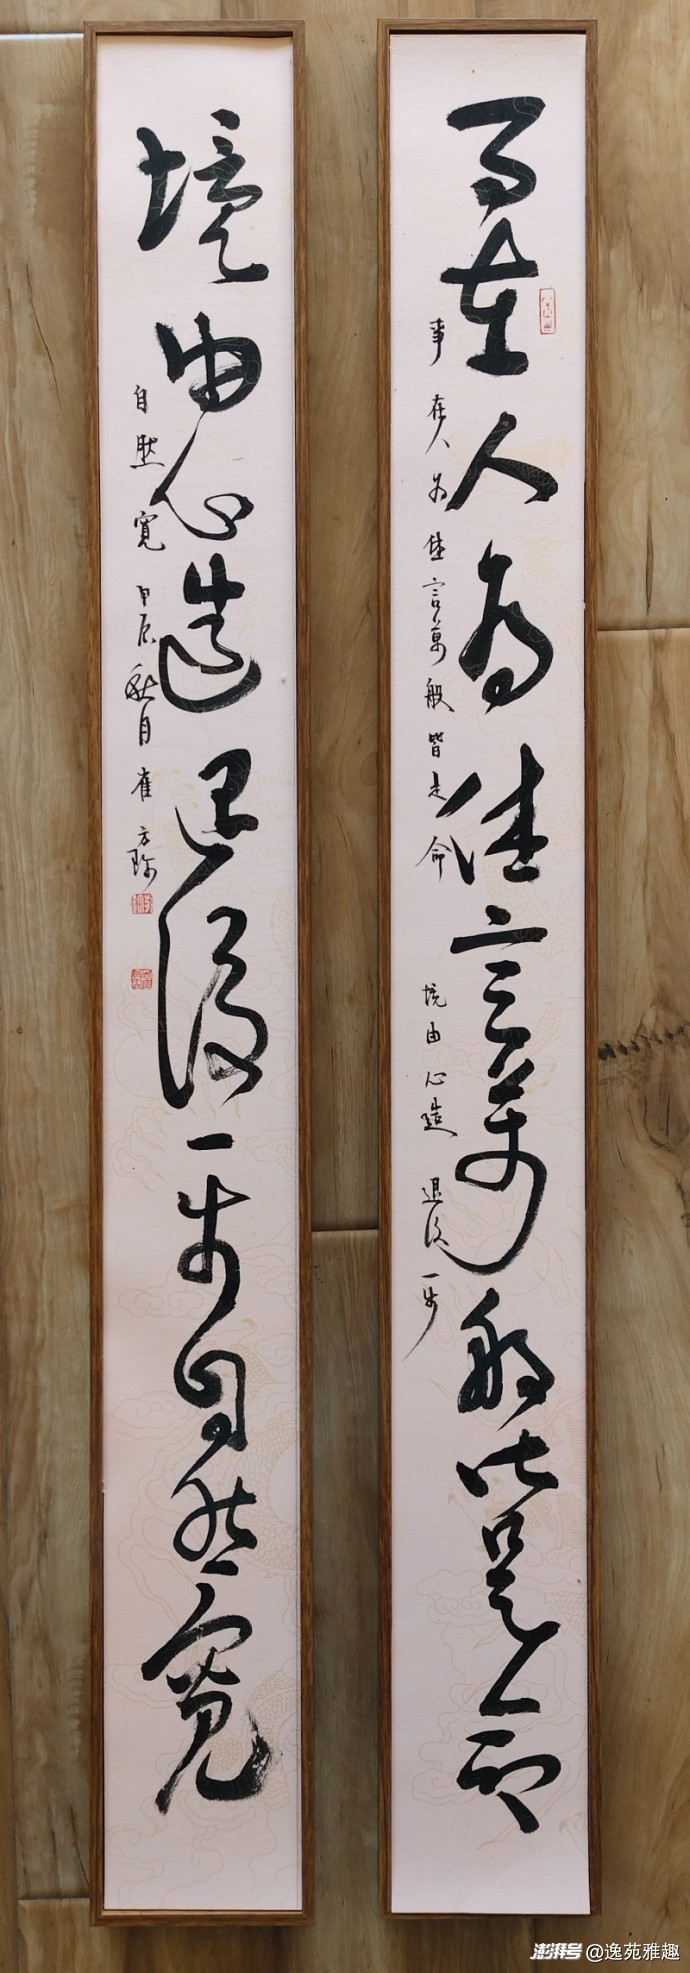 事在人為休言萬般皆是命
事在人为休言萬般皆是命
境由心造退後一步
境由心造退後一步自然寬
自然寬甲辰秋月崔方
澎湃号@逸苑雅趣